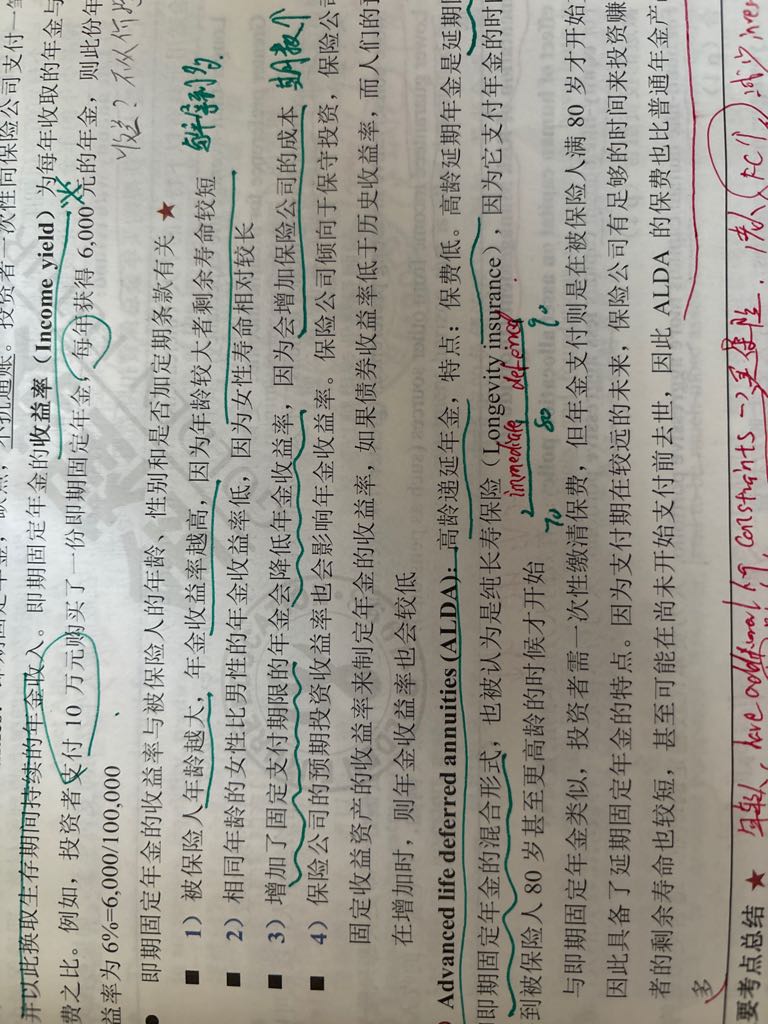 并以此换取生存期间持续的年金收入。即期固定年金的收益率（Income yield）为每年收取的年金与
费之比。例如，投资者支付 10 万元购买了一份即期固定年金，每年获得 6,000 元的年金，则此份年
益率为 6%=6,000/100,000
收益？不从
即期固定年金的收益率与被保险人的年龄、性别和是否加定期条款有关 ★
■ 1）被保险人年龄越大，年金收益率越高，因为年龄较大者剩余寿命较短
■ 2）相同年龄的女性比男性的年金收益率低，因为女性寿命相对较长
■ 3）增加了固定支付期限的年金会降低年金收益率，因为会增加保险公司的成本
■ 4）保险公司的预期投资收益率也会影响年金收益率。保险公司倾向于保守投资，保险公
固定收益资产的收益率来制定年金的收益率，如果债券收益率低于历史收益率，而人们的
在增加时，则年金收益率也会较低
Advanced life deferred annuities (ALDA)：高龄递延年金，特点：保费低。高龄延期年金是延期
即期固定年金的混合形式，也被认为是纯长寿保险（Longevity insurance），因为它支付年金的时
immediate defined
70 80 90
到被保险人 80 岁甚至更高龄的时候才开始
与即期固定年金类似，投资者需一次性缴清保费，但年金支付则是在被保险人满 80 岁才开始
因此具备了延期固定年金的特点。因为支付期在较远的未来，保险公司有足够的时间来投资赚
者的剩余寿命也较短，甚至可能在尚未开始支付前去世，因此 ALDA 的保费也比普通年金产
多
要考点总结 ★
年轻人, have additional liq constraints → 买保险. 老人 FC↑ 减少